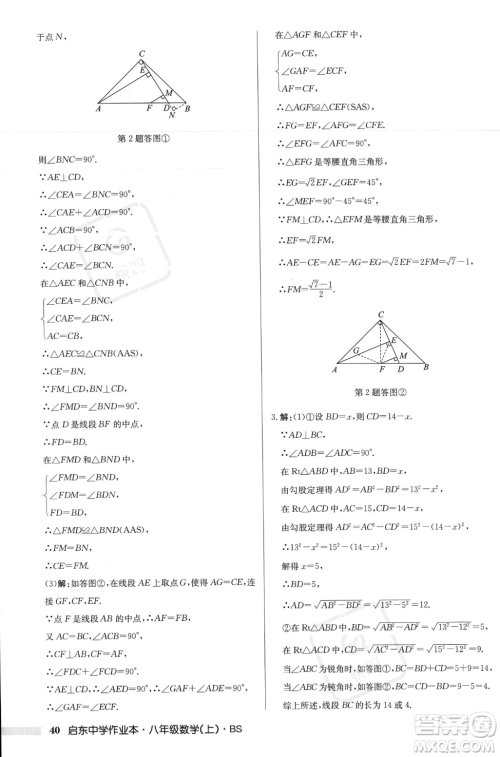 于点 N，
C
E
M
A
F
D
B
N
第2题答图①
则∠BNC=90°.
∵AE⊥CD，
∴∠CEA=∠BNC=90°.
∴∠CAE+∠ACE=90°.
∵∠ACB=90°，
∴∠ACD+∠BCN=90°.
∴∠CAE=∠BCN.
在△AEC 和△CNB 中，
∠CEA=∠BNC,
∠CAE=∠BCN,
AC=CB,
∴△AEC≌△CNB(AAS).
∴CE=BN.
∵FM⊥CD，BN⊥CD，
∴∠FMD=∠BND=90°.
∵点 D 是线段 BF 的中点，
∴FD=BD.
在△FMD 和△BND 中，
∠FMD=∠BND,
∠FDM=∠BDN,
FD=BD,
∴△FMD≌△BND(AAS).
∴FM=BN.
∴FM=CE.
(3)解：如答图②，在线段 AE 上取点 G，使得 AG=CE，连
接 GF，CF，EF.
∵点 F 是线段 AB 的中点，
∴AF=BF.
又∵AC=BC，∠ACB=90°，
∴∠AFC=90°，∠BCF=∠CAF=45°，AF=CF.
∵∠CAE=∠BCN，
∴∠GAF=∠ECF.
在△AGF 和△CEF 中，
AG=CE,
∠GAF=∠ECF,
AF=CF,
∴△AGF≌△CEF(SAS).
∴GF=EF，∠AFG=∠CFE.
∴∠GFE=∠AFC=90°.
∴△EFG 是等腰直角三角形.
∴∠GEF=∠EGF=45°.
∴∠MEF=90°-∠GEF=45°.
∴△EMF 是等腰直角三角形，
∴EF=√2FM.
∴GE=√2EF=2FM.
∵AE-CE=AE-AG=GE=√7-1，
∴FM=(√7-1)/2.
C
E
G
M
A
F
D
B
第2题答图②
3.解：(1)①设 BD=x，则 CD=14-x.
∵AD⊥BC，
∴∠ADB=∠ADC=90°.
在 Rt△ABD 中，AB=13，
由勾股定理得 AD²=AB²-BD²=13²-x².
在 Rt△ACD 中，AC=15，CD=14-x，
由勾股定理得 AD²=AC²-CD²=15²-(14-x)².
∴13²-x²=15²-(14-x)².
解得 x=5.
∴AD=√(AB²-BD²)=√(13²-5²)=12.
②在 Rt△ABD 中，BD=√(AB²-AD²)=√(13²-12²)=5.
在 Rt△ADC 中，CD=√(AC²-AD²)=√(15²-12²)=9.
当∠ABC 为锐角时，如答图①，BC=BD+CD=5+9=14.
当∠ABC 为钝角时，如答图②，BC=CD-BD=9-5=4.
综上所述，BC 的长为 14 或 4.
40 启东中学作业本·八年级数学(上)·BS